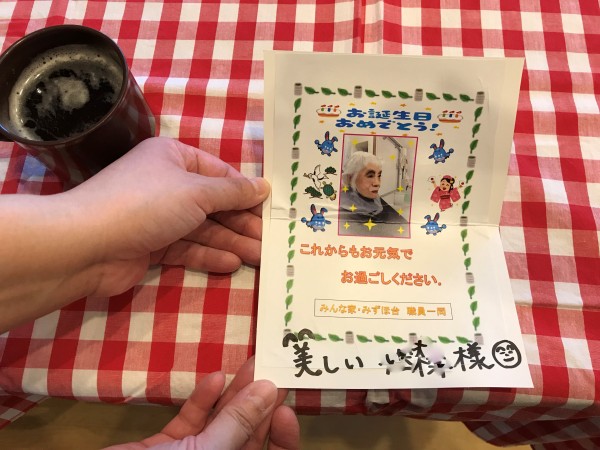 お誕生日
おめでとう!
これからもお元気で
お過ごしください.
みんな家・みずほ台 職員一同
美しい 様